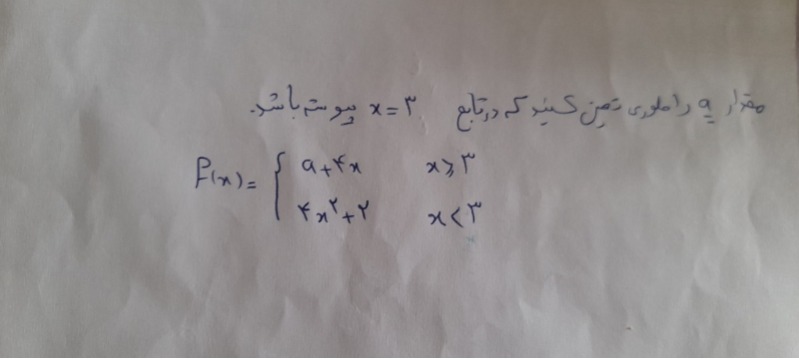 مقدار a را طوری تعیین کنید که در تابع x = ۳ پیوسته باشد.
f(x) = { a + ۴x x ≥ ۳
۴x² + ۲ x < ۳